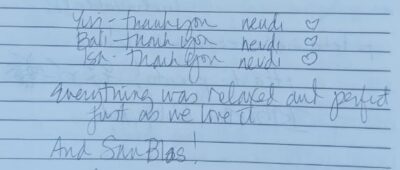 Yin - thank you neudi ♡
Bali - thank you neudi ♡
Ish - thank you neudi ♡
Everything was relaxed and perfect
just as we love it
And San Blas!